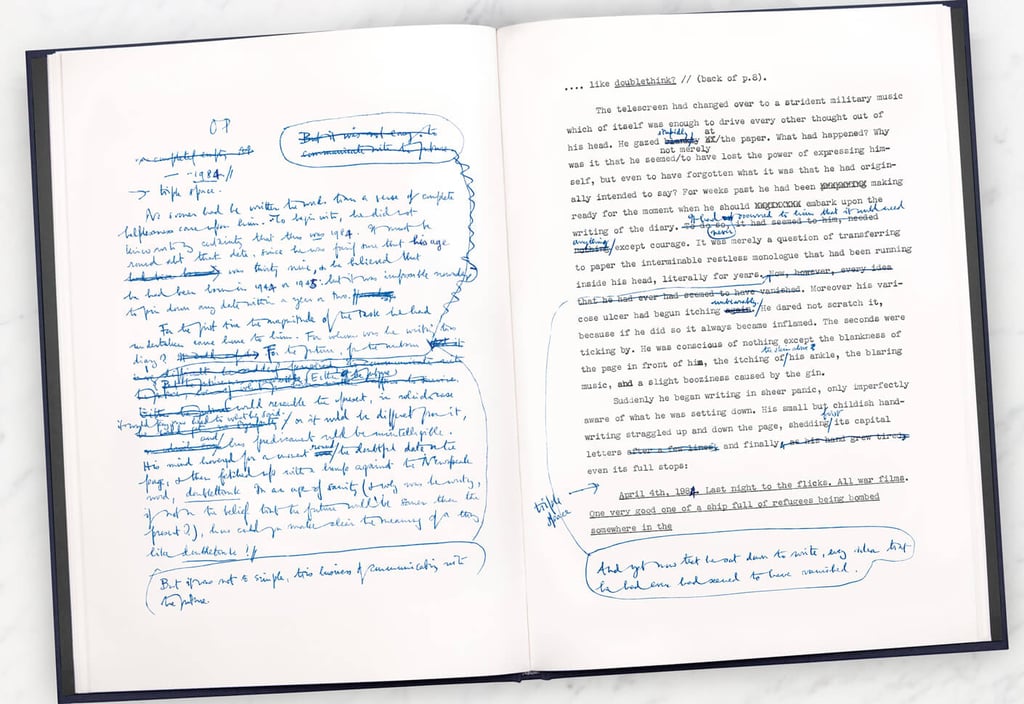 OP
But it was not easy to
communicate with the future
a completely empty
— 1984 //
→ triple space.
No sooner had he written to than a sense of complete
helplessness came upon him. To begin with, he did not
know with any certainty that this was 1984. It must be
round abt that date, since he was fairly sure that his age
was thirty nine, & he believed that
he had been born in 1944 or 1945: but it was impossible nowadays
to pin down any date within a year or two.
For the first time the magnitude of the task he had
undertaken came home to him. For whom was he writing this
diary? For the future, for the unborn
Either the future
would resemble the present, in which case
or it would be different from it,
and his predicament would be unintelligible.
His mind hovered for a moment round the doubtful date on the
page, & then fetched up with a bump against the Newspeak
word, doublethink. In an age of sanity (& why was he writing,
if not in the belief that the future would be saner than the
present?), how could you make clear the meaning of a word
like doublethink?//
But it was not so simple, this business of communicating with
the future.
.... like doublethink? // (back of p.8).
The telescreen had changed over to a strident military music
which of itself was enough to drive every other thought out of
stupidly at
his head. He gazed /the paper. What had happened? Why
not merely
was it that he seemed/to have lost the power of expressing him-
self, but even to have forgotten what it was that he had origin-
ally intended to say? For weeks past he had been making
ready for the moment when he should embark upon the
It had occurred to him that it would need
writing of the diary. To do so, it had seemed to him, needed
anything never
nothing/except courage. It was merely a question of transferring
to paper the interminable restless monologue that had been running
inside his head, literally for years. Now, however, every idea
that he had ever had seemed to have vanished. Moreover his vari-
unbearably
cose ulcer had begun itching again./He dared not scratch it,
because if he did so it always became inflamed. The seconds were
ticking by. He was conscious of nothing except the blankness of
the skin above
the page in front of him, the itching of/his ankle, the blaring
music, and a slight booziness caused by the gin.
Suddenly he began writing in sheer panic, only imperfectly
aware of what he was setting down. His small but childish hand-
first
writing straggled up and down the page, shedding/its capital
letters after a few lines, and finally, as his hand grew tired,
even its full stops:
triple space →
April 4th, 1984. Last night to the flicks. All war films.
One very good one of a ship full of refugees being bombed
somewhere in the
And yet now that he sat down to write, every idea that
he had ever had seemed to have vanished.